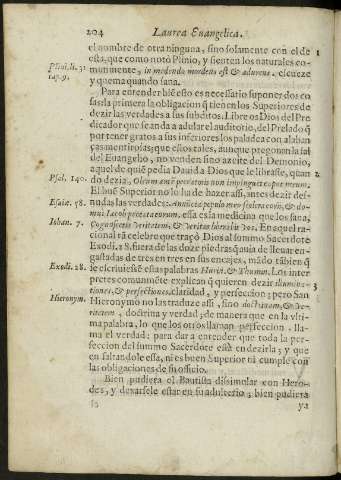 204 Laurea Euangelica.
el nombre de otra ninguna, sino solamente con el de 1
esta, que como notò Plinio, y sienten los naturales co-
Plini. li. 31
cap. 9.
munmente, in medendo mordens est & adurens, escueze
y quema quando sana.
Para entender biẽ esto es necessario suponer dos co
sas: la primera la obligacion q̃ tienen los Superiores de
dezir las verdades a sus subditos. Libre os Dios del Pre
dicador que se anda a adular el auditorio, del Prelado q̃
por tener gratos a sus inferiores los paladea con alaban
ças mentirosas; que estos tales, aunque pregonan la sal
del Euangelio, no venden sino azeite del Demonio,
aquel de quiẽ pedia Dauid a Dios que le librasse, quan 2
Psal. 140.
do dezia, Oleum autẽ peccatoris non impinguet caput meum.
El buẽ Superior no lo ha de hazer assi, antes dezir des-
Esaiæ. 58.
nudas las verdades: Anũcia populo meo scelera eorũ, & do-
mui Iacob peccata eorum, essa es la medicina que los sana,
Iohan. 7.
Cognoscetis veritatem, & veritas liberabit vos. En aquel ra-
cional tã celebre que traxò Dios al summo Sacerdote
Exodi. 28. fuera de las doze piedras q̃ auia de lleuar en-
gastadas de tres en tres en sus encajes, mãdò tãbien q̃
Exodi. 28.
le escriuiessẽ estas palabras Hurim, & Thumin. Los inter
pretes comunmẽte explican q̃ quieren dezir illumina- 3
tiones, & perfectiones, claridad, y perfeccion; pero San
Hieronym.
Hieronymo no las traduze assi, sino doctrinam, & ve-
ritatem, doctrina y verdad; de manera que en la vlti-
ma palabra, lo que los otros llaman perfeccion, lla-
ma el verdad; para dar a entender que toda la per-
feccion del summo Sacerdote està en dezirla; y que
en faltandole essa, ni es buen Superior ni cumple con
las obligaciones de su oficio.
Bien pudiera el Bautista dissimular con Hero-
des, y dexarsele estar en su adulterio; bien pudiera
ya